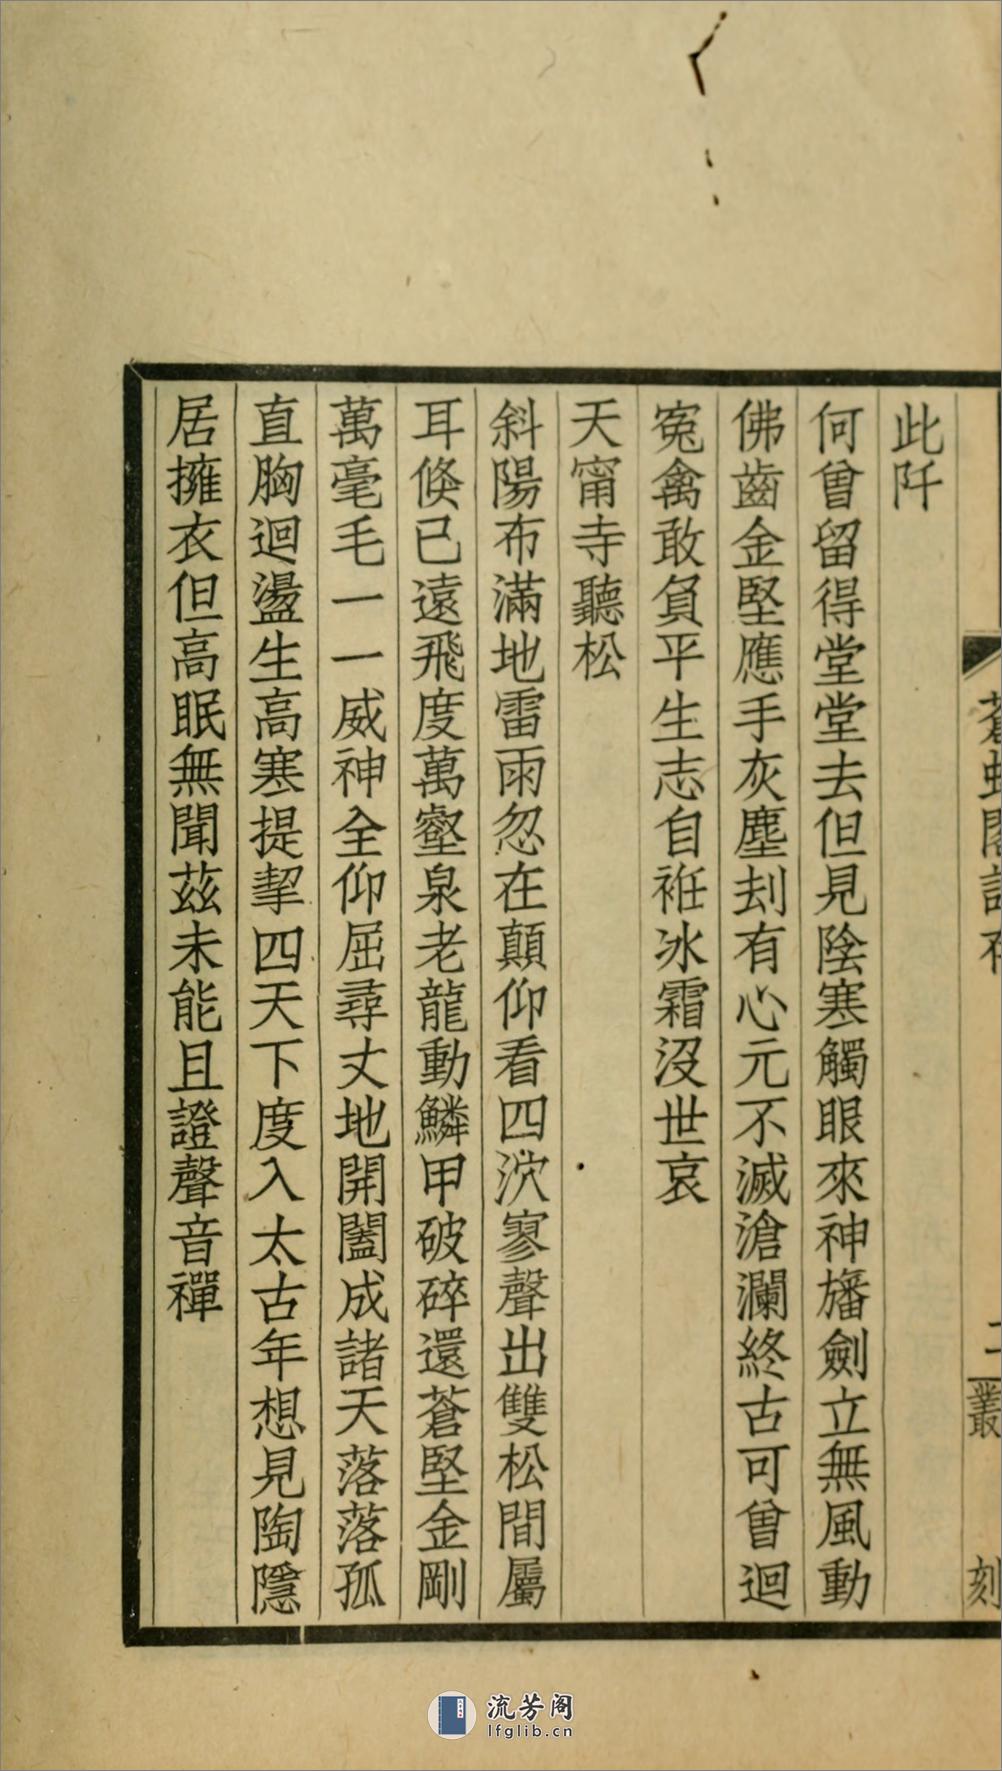 蒼虬閣詩存
二
叢
刻
此阡
何曾留得堂堂去但見陰寒觸眼來神旛劍立無風動
佛齒金堅應手灰塵刦有心元不滅滄瀾終古可曾迴
冤禽敢負平生志自袵冰霜沒世哀
天甯寺聽松
斜陽布滿地雷雨忽在顛仰看四泬寥聲出雙松間屬
耳倏已遠飛度萬壑泉老龍動鱗甲破碎還蒼堅金剛
萬毫毛一一威神全仰屈尋丈地開闔成諸天落落孤
直胸迴盪生高寒提挈四天下度入太古年想見陶隱
居擁衣但高眠無聞茲未能且證聲音禪
流芳阁
lfglib.cn